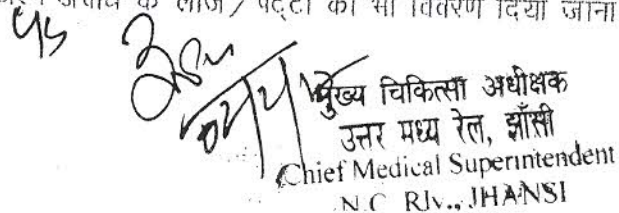 के लीज / पट्टों का भी विवरण दिया जाना
मुख्य चिकित्सा अधीक्षक
उत्तर मध्य रेल, झाँसी
Chief Medical Superintendent
N.C. Rly., JHANSI